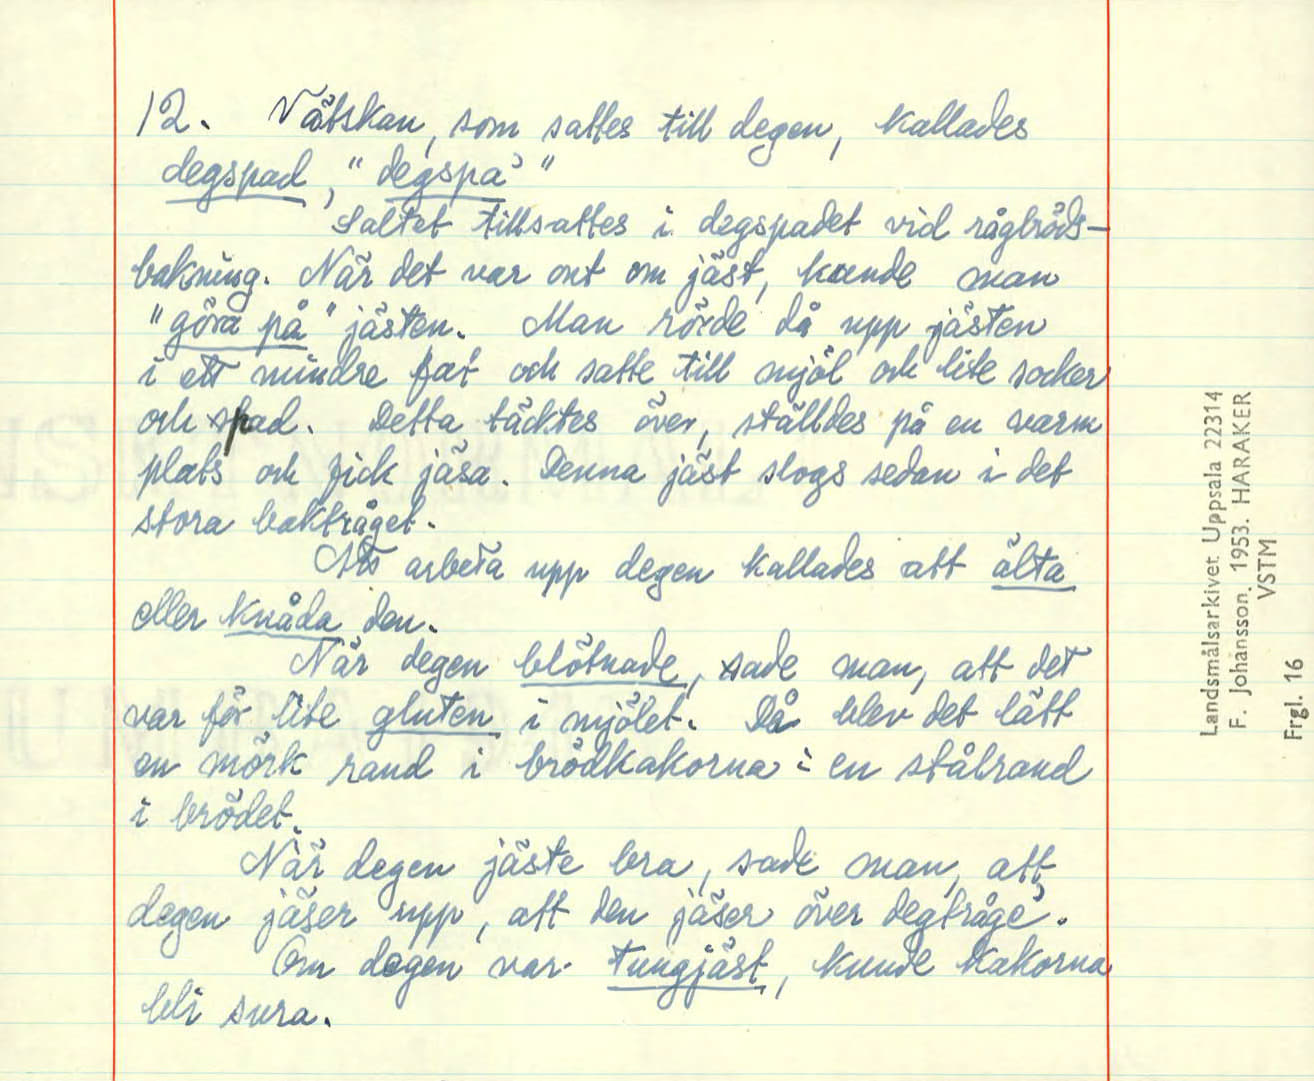 12. Vätskan, som sattes till degen, kallades
degspad, "degspa'"
Saltet tillsattes i degspadet vid rågbröds-
bakning. När det var ont om jäst, kunde man
"göra på" jästen. Man rörde då upp jästen
i ett mindre fat och satte till mjöl och lite socker
och spad. Detta täcktes över, ställdes på en varm
plats och fick jäsa. Denna jäst slogs sedan i det
stora baktråget.
Att arbeta upp degen kallades att älta
eller knåda den.
När degen blötnade, sade man, att det
var för lite gluten i mjölet. Då blev det lätt
en mörk rand i brödkakorna: en stålrand
i brödet.
När degen jäste bra, sade man, att
degen jäser upp, att den jäser över degtråge'.
Om degen var tungjäst, kunde kakorna
bli sura.
Landsmålsarkivet Uppsala 22314
F. Johansson. 1953. HARAKER
VSTM
Frgl. 16